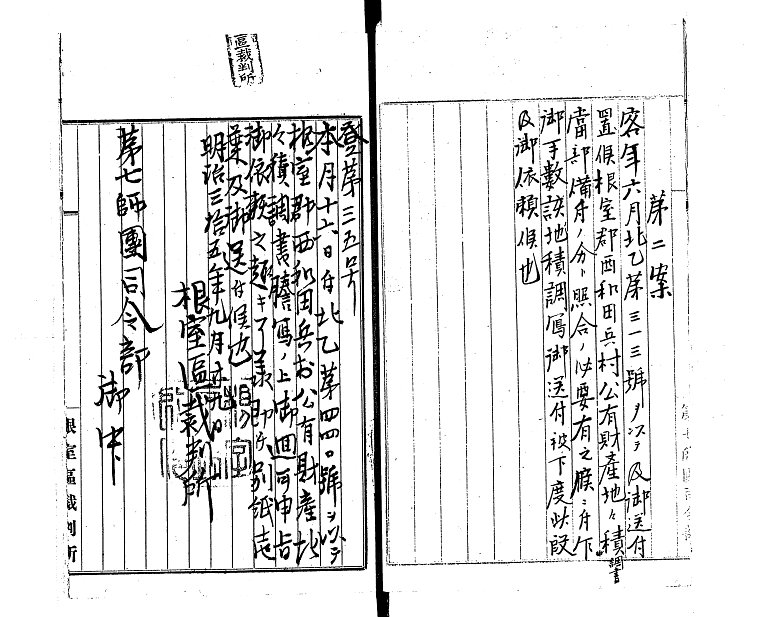 第二案
客年六月北乙第三一三號ヲ以テ及御送付
置候根室郡西和田兵村公有財產地々積調書
當部備付ノ分ト照合ノ必要有之候ニ付乍
御手数該地積調寫御送付被下度此段
及御依賴候也
區裁判所
登第三五号
本月十六日付北乙第四四〇號ヲ以テ
根室郡西和田兵村公有財產地
々積調書謄寫ノ上御回可申旨
御依賴之趣キ了承即チ別紙壱
葉及御送付候也
明治三拾五年九月 日
根室區裁判所
第七師團司令部
御中
根室區裁判所